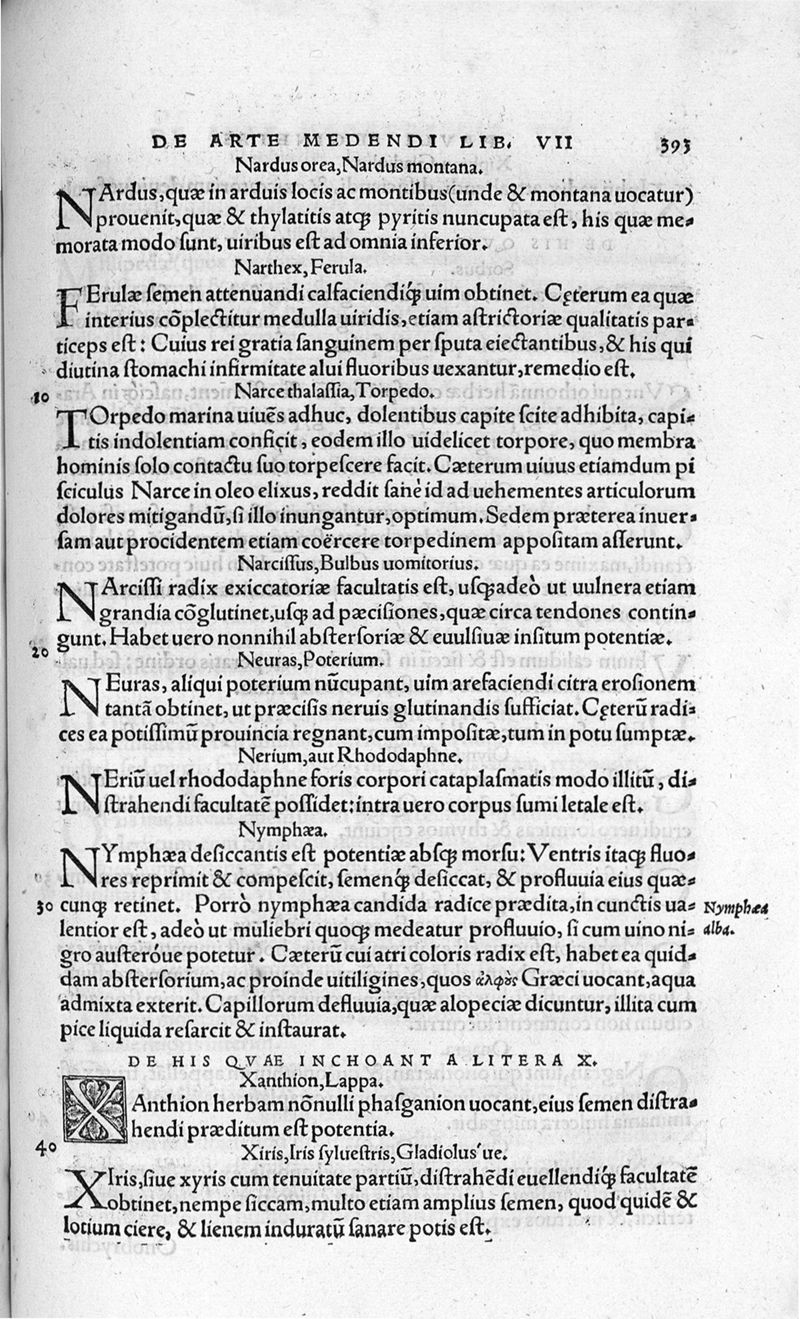 DE ARTE MEDENDI LIB. VII 393
Nardus orea, Nardus montana.
NArdus, quæ in arduis locis ac montibus (unde & montana uocatur)
prouenit, quæ & thylatitis atqꝫ pyritis nuncupata est, his quæ me-
morata modo sunt, uiribus est ad omnia inferior.
Narthex, Ferula.
FErulæ semen attenuandi calfaciendiqꝫ́ uim obtinet. Cęterum ea quæ
interius cōplectitur medulla uiridis, etiam astrictoriæ qualitatis par-
ticeps est: Cuius rei gratia sanguinem per sputa eiectantibus, & his qui
diutina stomachi infirmitate alui fluoribus uexantur, remedio est.
10 Narce thalassia, Torpedo.
TOrpedo marina uiuēs adhuc, dolentibus capite scite adhibita, capi-
tis indolentiam conficit, eodem illo uidelicet torpore, quo membra
hominis solo contactu suo torpescere facit. Cæterum uiuus etiamdum pi
sciculus Narce in oleo elixus, reddit sanè id ad uehementes articulorum
dolores mitigandū, si illo inungantur, optimum. Sedem præterea inuer-
sam aut procidentem etiam coërcere torpedinem appositam asserunt.
Narcissus, Bulbus uomitorius.
NArcissi radix exiccatoriæ facultatis est, usqꝫadeò ut uulnera etiam
grandia cōglutinet, usqꝫ ad pæcisiones, quæ circa tendones contin-
gunt. Habet uero nonnihil abstersoriæ & euulsiuæ insitum potentiæ.
20 Neuras, Poterium.
NEuras, aliqui poterium nūcupant, uim arefaciendi citra erosionem
tantā obtinet, ut præcisis neruis glutinandis sufficiat. Cęterū radi-
ces ea potissimū prouincia regnant, cum impositæ, tum in potu sumptæ.
Nerium, aut Rhododaphne.
NEriū uel rhododaphne foris corpori cataplasmatis modo illitū, di-
strahendi facultatē possidet: intra uero corpus sumi letale est.
Nymphæa.
NYmphæa desiccantis est potentiæ absqꝫ morsu: Ventris itaqꝫ fluo-
res reprimit & compescit, semenqꝫ́ desiccat, & profluuia eius quæ-
30 cunqꝫ retinet. Porrò nymphæa candida radice prædita, in cunctis ua- Nymphæa
lentior est, adeò ut muliebri quoqꝫ medeatur profluuio, si cum uino ni- alba.
gro austeróue potetur. Cæterū cui atri coloris radix est, habet ea quid-
dam abstersorium, ac proinde uitiligines, quos ἀλφὸς Græci uocant, aqua
admixta exterit. Capillorum defluuia, quæ alopeciæ dicuntur, illita cum
pice liquida resarcit & instaurat.
DE HIS QVAE INCHOANT A LITERA X.
Xanthion, Lappa.
XAnthion herbam nōnulli phasganion uocant, eius semen distra-
hendi præditum est potentia.
40 Xiris, Iris syluestris, Gladiolus'ue.
XIris, siue xyris cum tenuitate partiū, distrahēdi euellendiqꝫ́ facultatē
obtinet, nempe siccam, multo etiam amplius semen, quod quidē &
lotium ciere, & lienem induratū sanare potis est.